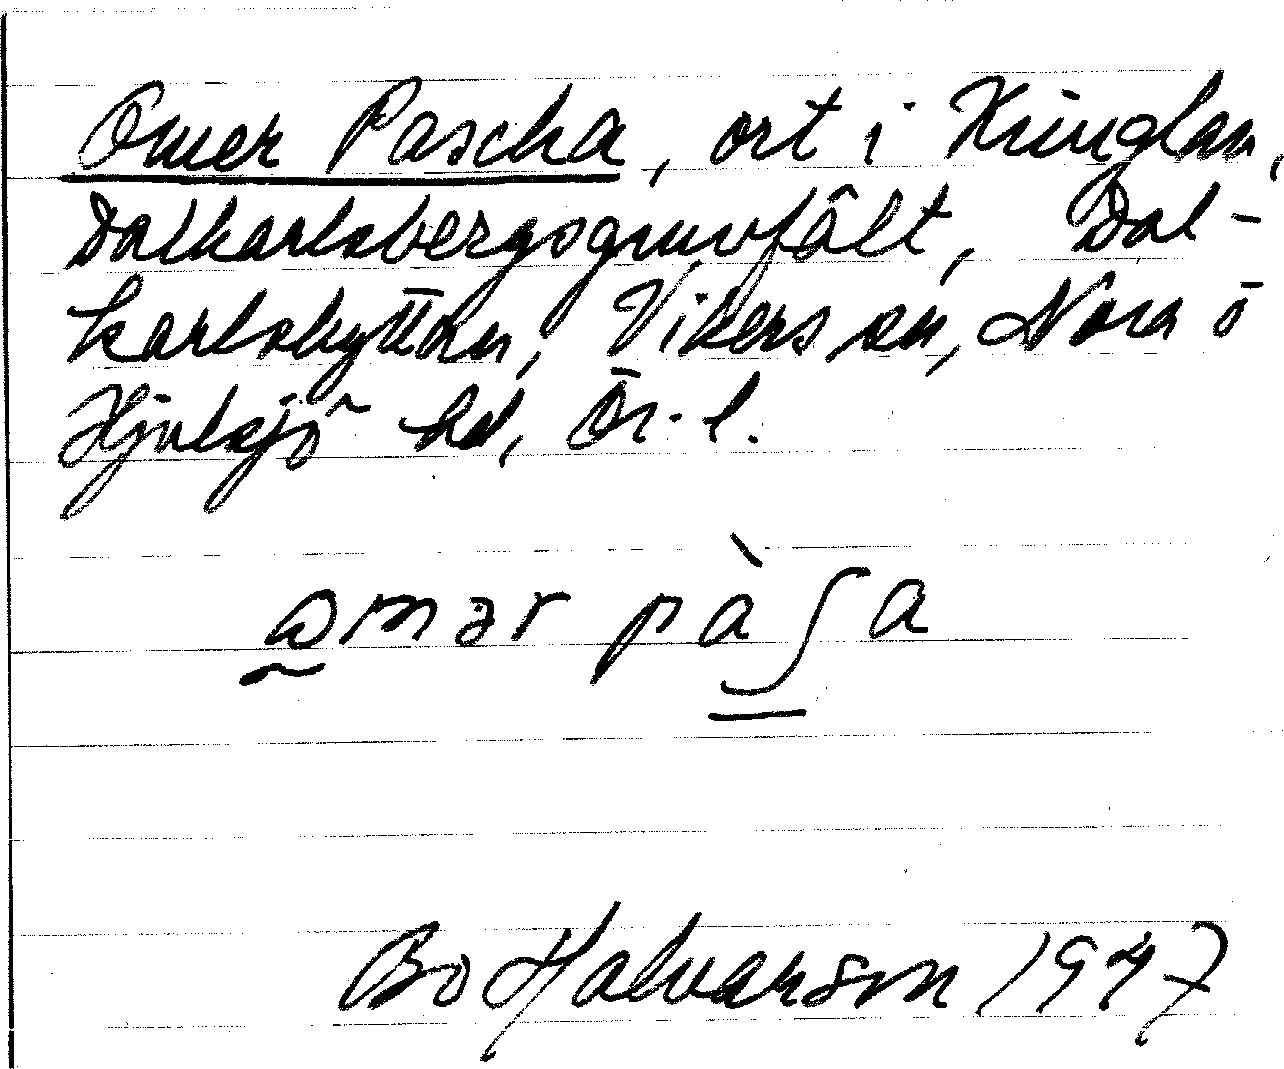 Omer Pascha, ort i Kringlan,
Dalkarlsbergsgruvfält, Dal-
karlshyttan, Vikers sn, Nora o
Hjulsjö hd, Ör. l.
amər pàʃa
Bo Halvarson 1947